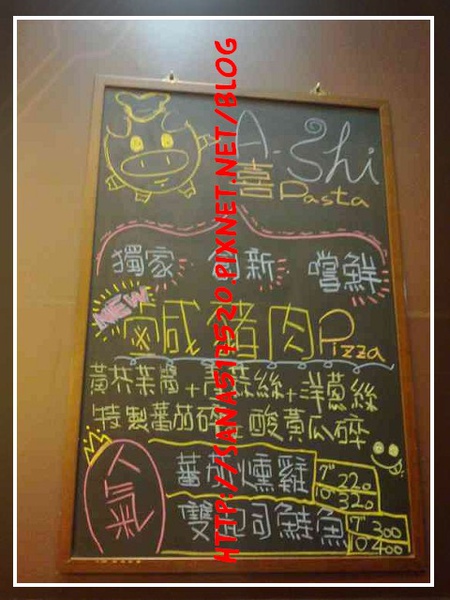 A-Shi
喜 Pasta
獨家 創新 嚐鮮
NEW
鹹豬肉 Pizza
黃芥茉醬+青蒜絲+洋蔥絲
特製蕃茄碎 酸黃瓜碎
人氣
蕃茄燻雞 7" 220
10" 320
雙起司鮭魚 7" 300
10" 400
HTTP://SANA517520.PIXNET.NET/BLOG